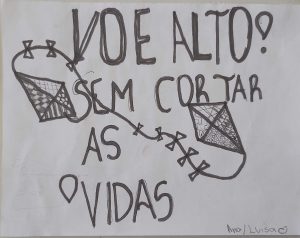 VOE ALTO!
SEM CORTAR
AS
VIDAS
Ana/Luísa